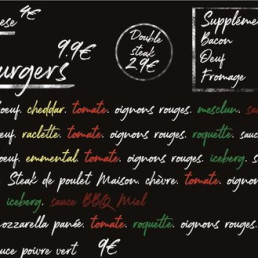 ese 4€
9.9€
urgers
Double
steak
2.9€
Supplém
Bacon
Oeuf
Fromage
oeuf. cheddar. tomate. oignons rouges. mesclun.
oeuf. raclette. tomate. oignons rouges. roquette. sauc
oeuf. emmental. tomate. oignons rouges. iceberg. s
. Steak de poulet Maison. chèvre. tomate. oig
iceberg. sauce BBQ Miel
mozzarella panée. tomate. roquette. oignons rouges.
uce poivre vert 9€